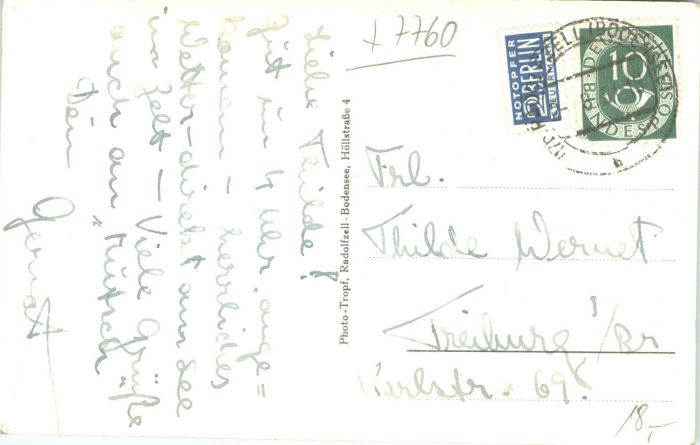 Liebe Thilde!
Gut um 4 Uhr ange=
kommen - herrliches
Wetter - direkt am See
im Zelt - Viele Grüße
auch an "Mutsch"
Dein
Gernot
Photo-Tropf, Radolfzell-Bodensee, Höllstraße 4
+ 7760
NOTOPFER
2 BERLIN
STEUERMARKE
DEUTSCHE BUNDESPOST
10
(BODENSEE)
Frl.
Thilde Wernet
Freiburg /Br
Karlstr. 69.
18,-